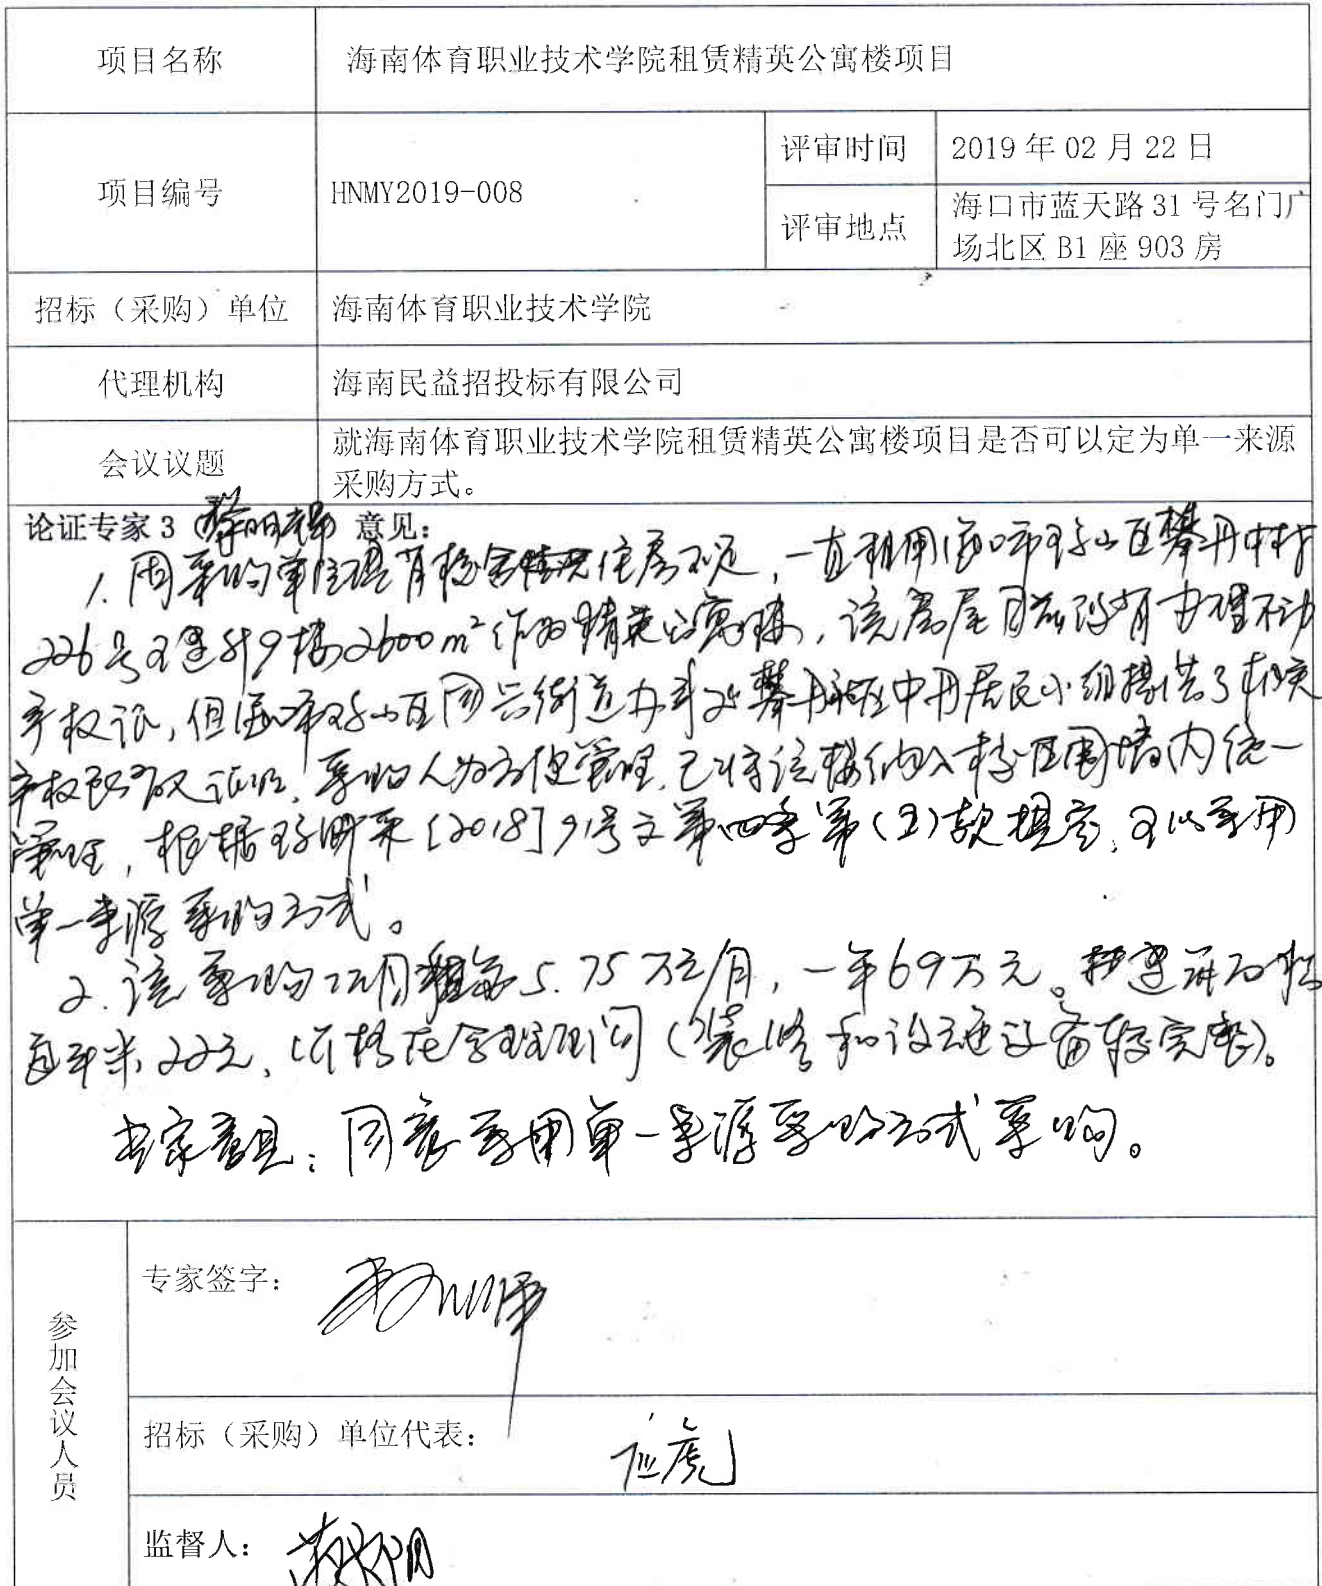 项目名称 海南体育职业技术学院租赁精英公寓楼项目
项目编号 HNMY2019-008 评审时间 2019 年 02 月 22 日
评审地点 海口市蓝天路 31 号名门广
场北区 B1 座 903 房
招标（采购）单位 海南体育职业技术学院
代理机构 海南民益招投标有限公司
会议议题 就海南体育职业技术学院租赁精英公寓楼项目是否可以定为单一来源
采购方式。
论证专家 3（）意见：
1. 因采购单位现有校舍住房不足，一直租用海口市琼山区攀丹中村
226号9楼2600m²作为精英公寓楼，该房屋目前没有办理不动
产权证，但海口市琼山区国兴街道办事处攀丹社区中丹居民小组提供了相关
产权证明，采购人为方便管理，已将该楼纳入校区围墙内统一
管理，根据琼财采[2018]91号文第四条第(五)款规定，可以采用
单一来源采购方式。
2. 该采购项目租金5.75万元/月，一年69万元。
每平米22元，价格在合理区间（装修和设施设备较完整）。
专家意见：同意采用单一来源采购方式采购。
参加会议人员
专家签字：
招标（采购）单位代表：
监督人：